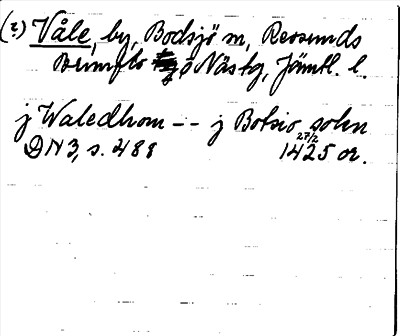 (2) Våle, by, Bodsjö sn, Revsunds
Brunflo o Näs tg, Jämtl. l.
j Waledhom -- j Botsio sokn
27/2
DN 3, s. 488 1425 or.